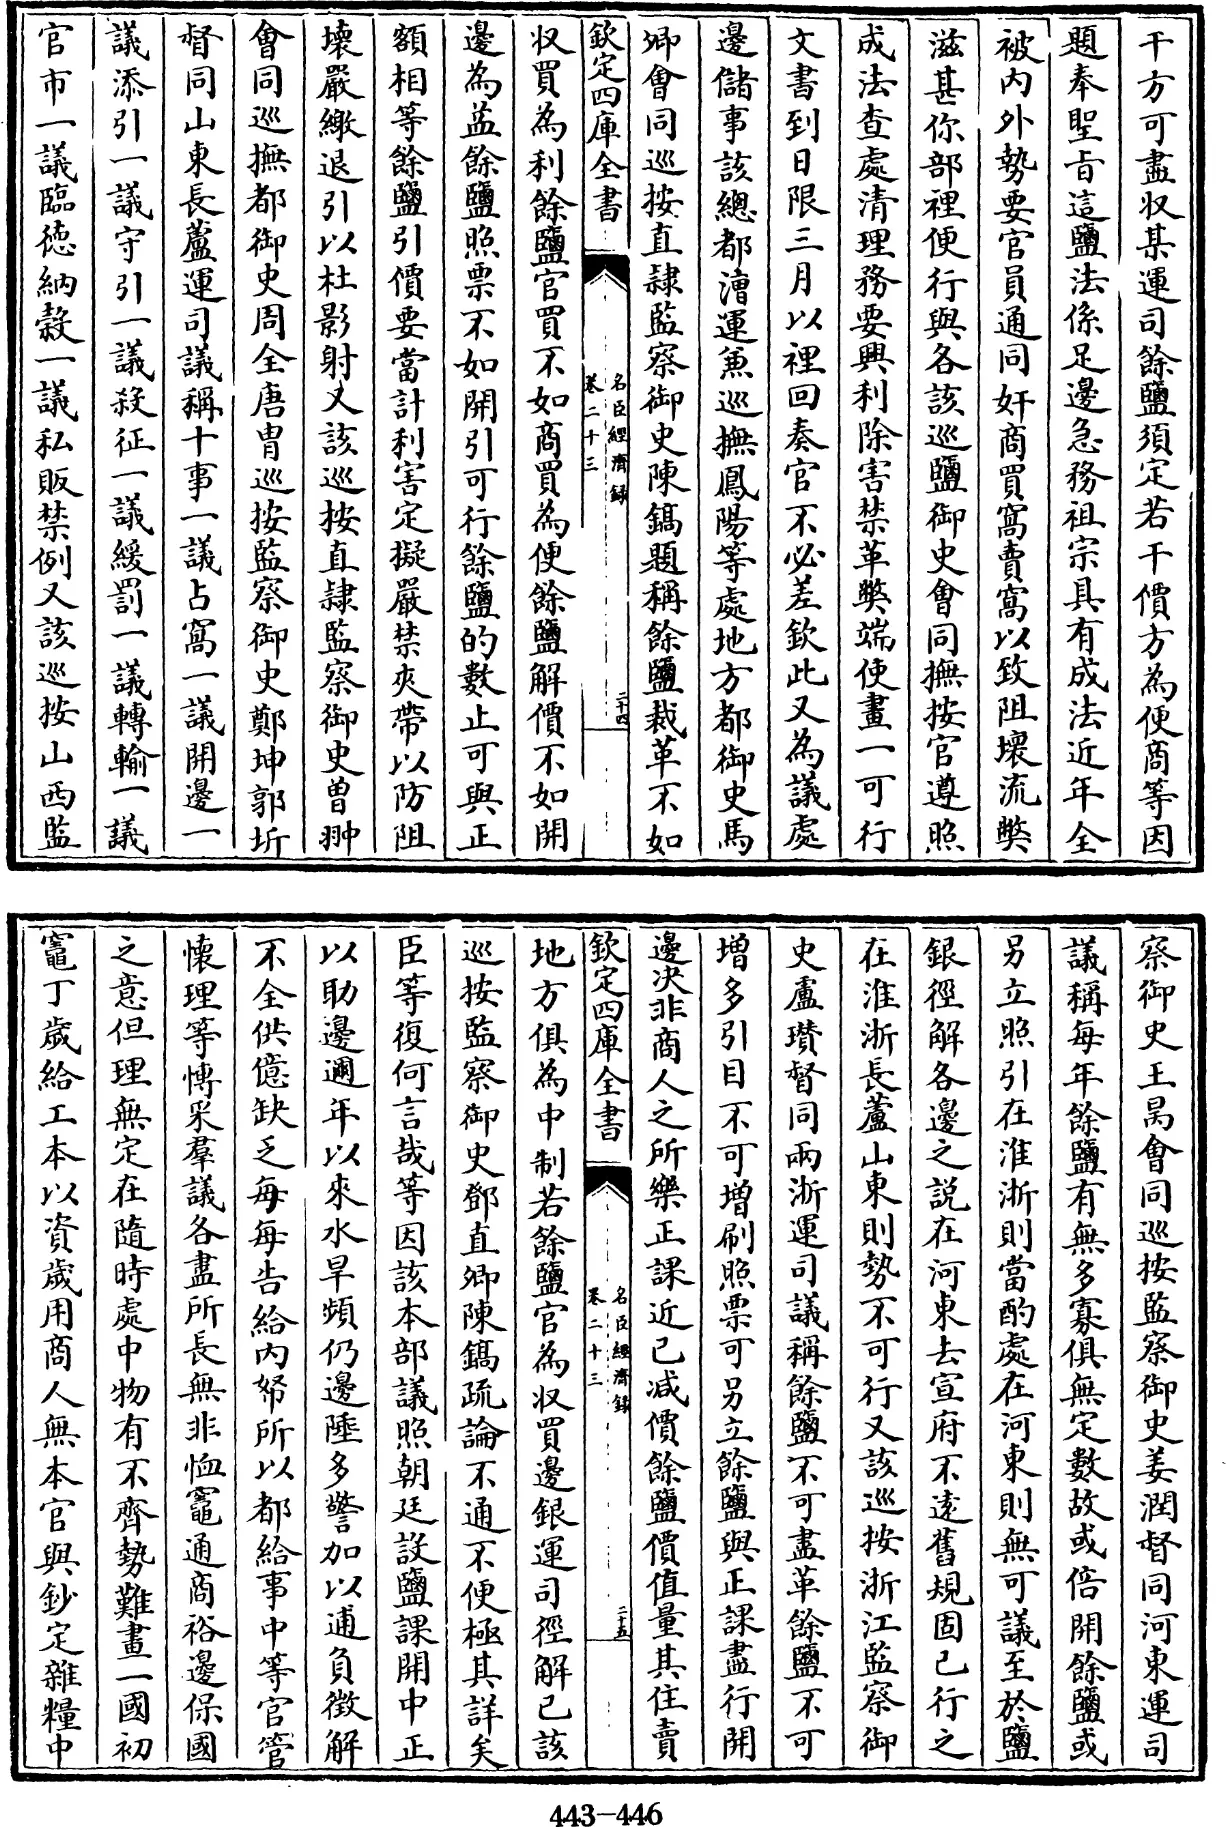 干方可盡収某運司餘鹽須定若干價方為便商等因
題奉聖旨這鹽法係足邊急務祖宗具有成法近年全
被内外勢要官員通同奸商買窩賣窩以致阻壞流獘
滋甚你部裡便行與各該巡鹽御史會同撫按官遵照
成法查處清理務要興利除害禁革獘端使畫一可行
文書到日限三月以裡回奏官不必差欽此又為議處
邊儲事該總都漕運兼巡撫鳳陽等處地方都御史馬
卿會同巡按直隸監察御史陳鎬題稱餘鹽裁革不如
欽定四庫全書
名臣經濟録
卷二十三
二十四
収買為利餘鹽官買不如商買為便餘鹽解價不如開
邊為益餘鹽照票不如開引可行餘鹽的數止可與正
額相等餘鹽引價要當計利害定擬嚴禁夾帶以防阻
壞嚴繳退引以杜影射又該巡按直隸監察御史曾翀
會同巡撫都御史周全唐冑巡按監察御史鄭坤郭圻
督同山東長蘆運司議稱十事一議占窩一議開邊一
議添引一議守引一議殺征一議緩罰一議轉輸一議
官市一議臨徳納穀一議私販禁例又該巡按山西監
察御史王昺會同巡按監察御史姜潤督同河東運司
議稱每年餘鹽有無多寡俱無定數故或倍開餘鹽或
另立照引在淮浙則當酌處在河東則無可議至於鹽
銀徑解各邊之説在河東去宣府不逺舊規固已行之
在淮浙長蘆山東則勢不可行又該巡按浙江監察御
史盧瓚督同兩浙運司議稱餘鹽不可盡革餘鹽不可
增多引目不可增刷照票可另立餘鹽與正課盡行開
邊决非商人之所樂正課近已减價餘鹽價值量其住賣
欽定四庫全書
名臣經濟録
卷二十三
二十五
地方俱為中制若餘鹽官為収買邊銀運司徑解已該
巡按監察御史鄧直卿陳鎬疏論不通不便極其詳矣
臣等復何言哉等因該本部議照朝廷設鹽課開中正
以助邊邇年以來水旱頻仍邊陲多警加以逋負徵解
不全供億缺乏每每告給内帑所以都給事中等官管
懷理等愽采羣議各盡所長無非恤竈通商裕邊保國
之意但理無定在隨時處中物有不齊勢難畫一國初
竈丁歲給工本以資歲用商人無本官與鈔定雜糧中
443-446